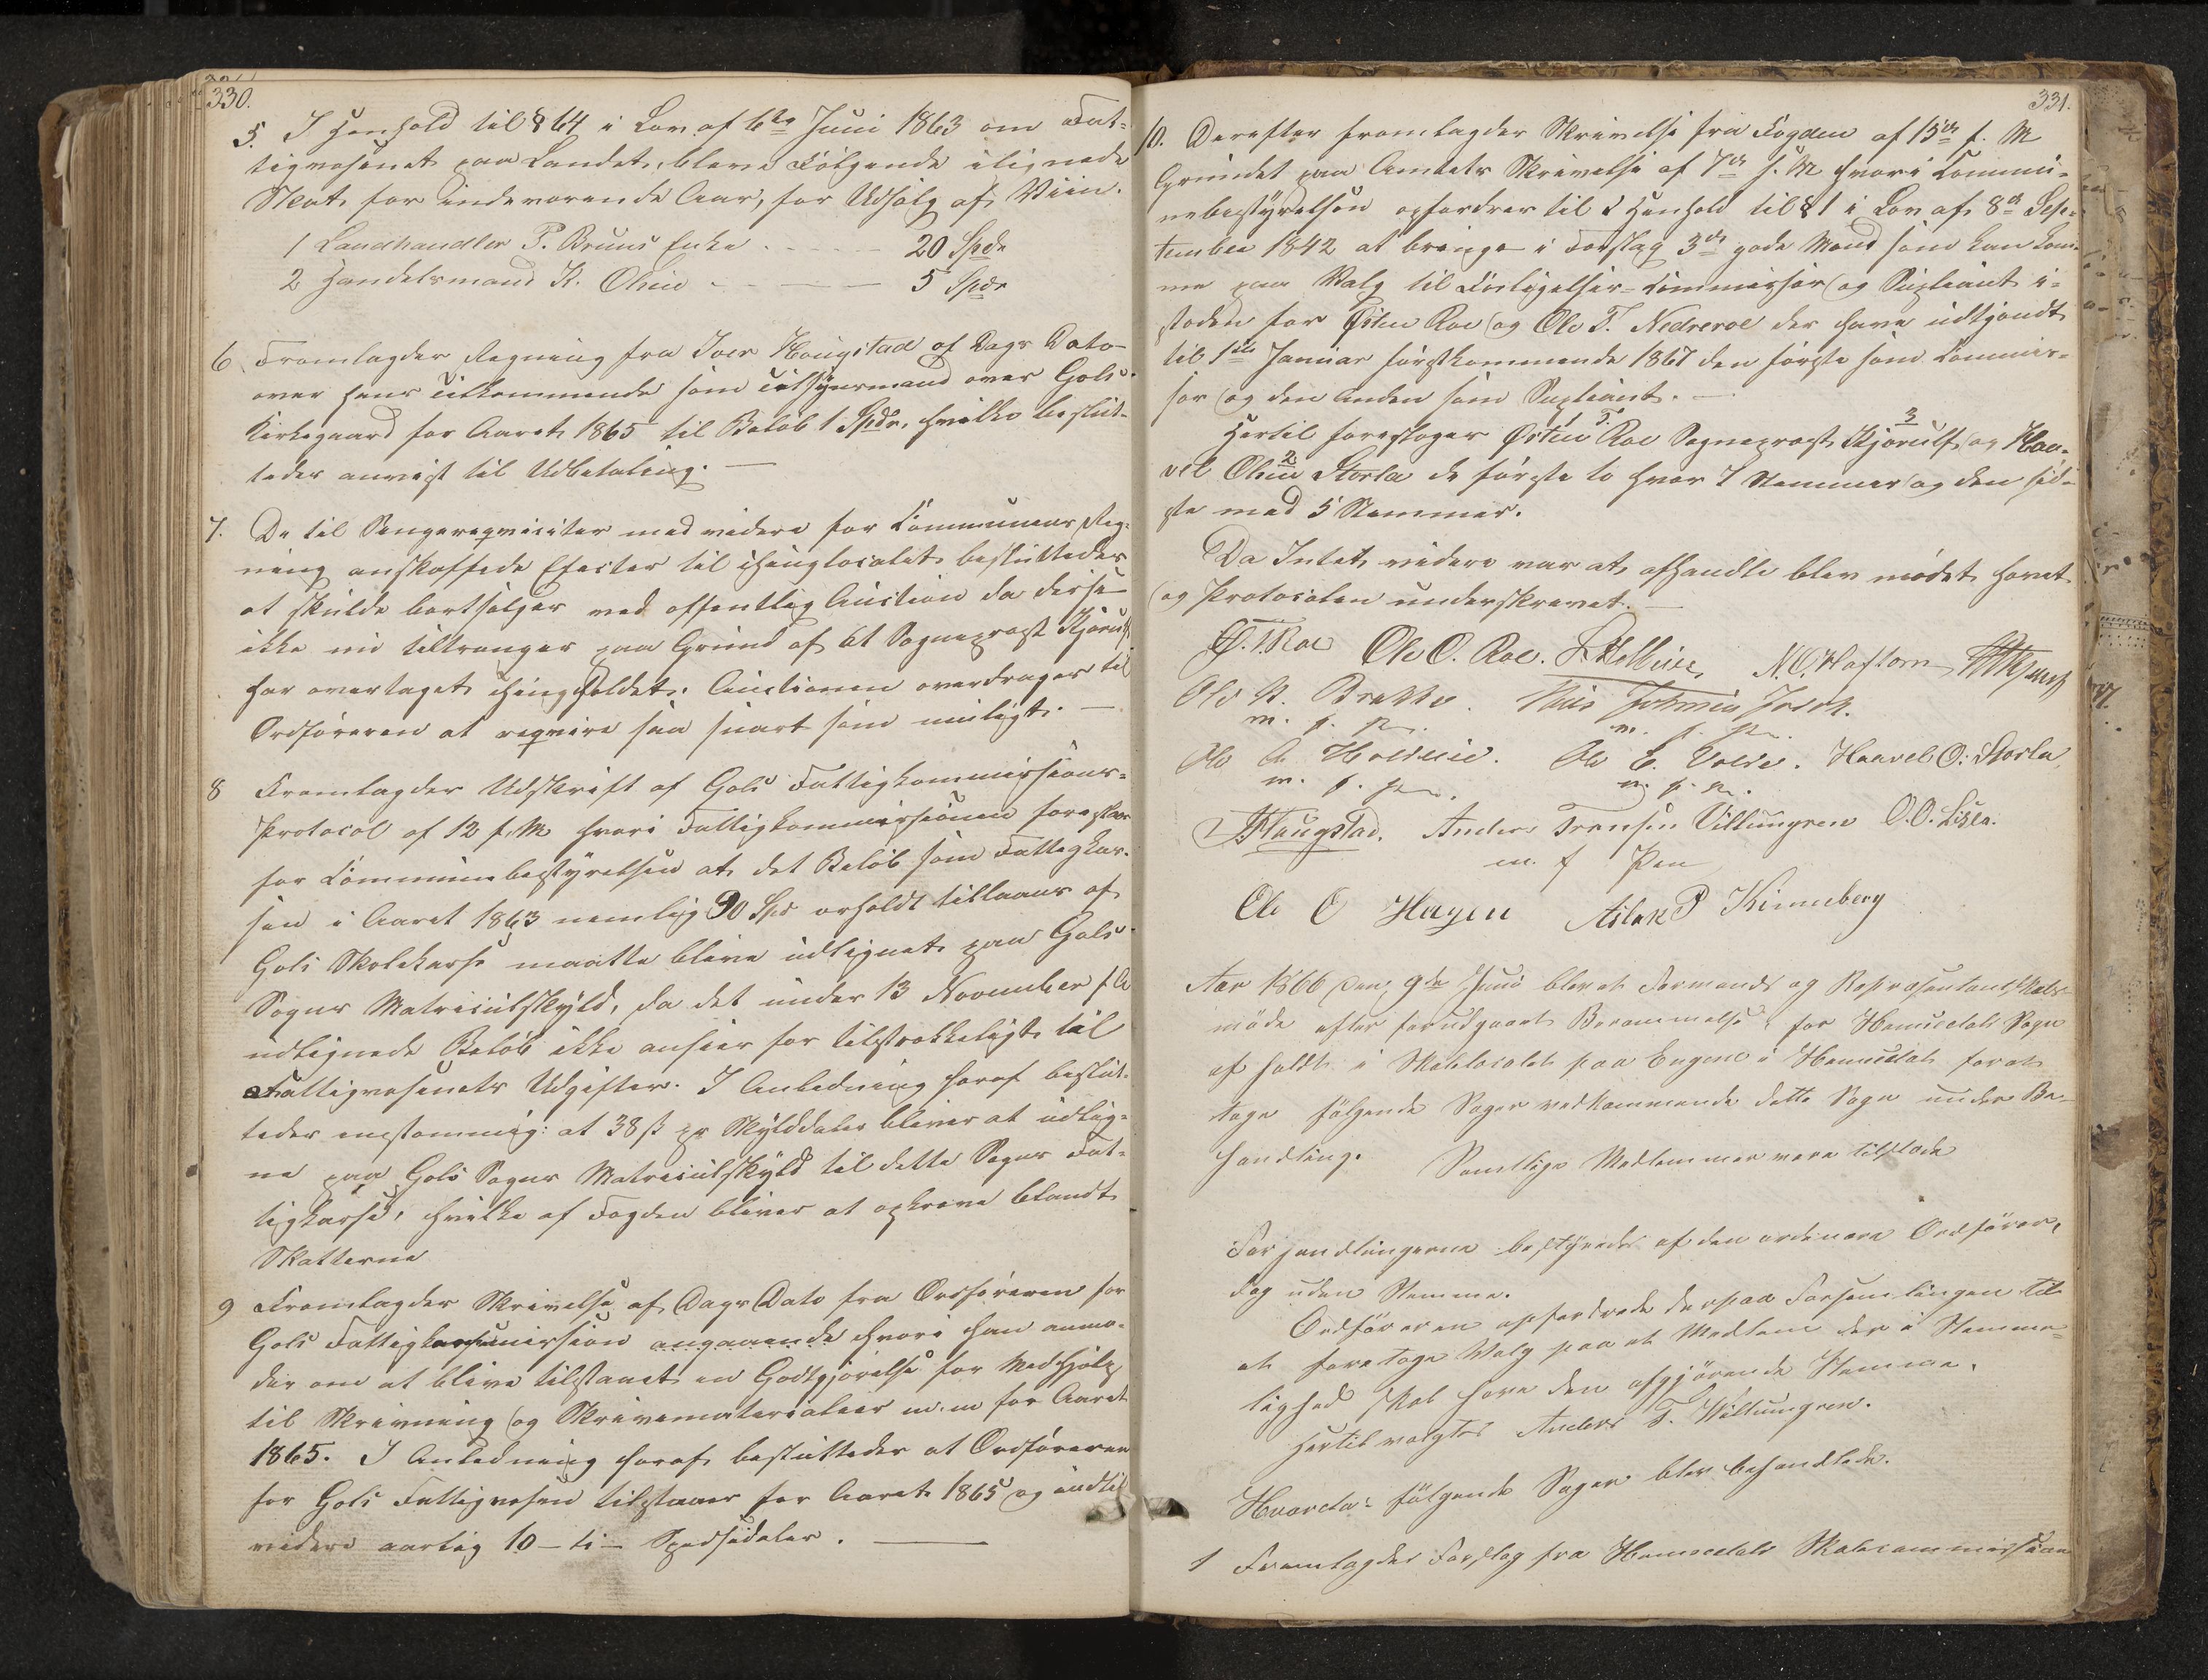 330.
5. I Henhold til § 64 i Lov af 6te Juni 1863 om Fat-
tigvæsenet paa Landet, bleve Følgende ilignede
Skat for indeværende Aar, for Udsalg af Viin.
1 Landhandler P. Bruns Enke . - - - - 20 Spdr
2 Handelsmand K. Olsen - - - - - 5 Spdr
6 Fremlagdes Regning fra Iver Haugstad af Dags Dato
over hans Tilkommende som Tilsynsmand over Gols
Kirkegaard for Aaret 1865 til Beløb 1 Spdr, hvilke beslut-
tedes anvist til Udbetaling. —
7. De til Sengereqvisiter med videre for Communens Reg-
ning anskaffede Efecter til Thinglocalet besluttedes
at skulde bortsælges ved offentlig Auction da disse
ikke nu tiltrænges paa Grund af at Sogneprest Kjerulf
har overtaget Thingholdet. Auctionen overdrages til
Ordføreren at reqvirere saa snart som muligt. —
8 Fremlagdes Udskrift af Gols Fattigkommissions-
Protocol af 12 f. M hvori Fattigkommissionen foreslaar
for Communebestyrelsen at det Beløb som Fattigkas-
sen i Aaret 1863 nemlig 90 Spd erholdt tillaans af
Gols Skolekasse maatte blive udlignet paa Gols
Sogns Matriculskyld, da det under 13 November f A
udlignede Beløb ikke ansees for tilstrækkeligt til
Fattigvæsenets Udgifter. I Anledning heraf beslut-
tedes enstemmig: at 38 ß pr Skylddaler bliver at udlig-
ne paa Gols Sogns Matriculskyld til dette Sogns Fat-
tigkasse, hvilke af Fogden bliver at opkræve blandt
Skatterne
9 Fremlagdes Skrivelse af Dags Dato fra Ordføreren for
Gols Fattigkommission angaaende hvori han anmo-
der om at blive tilstaaet en Godtgjørelse for Medhjælp
til Skrivning og Skrivematerialier m.m for Aaret
1865. I Anledning heraf besluttedes at Ordføreren
for Gols Fattigvæsen tilstaaes for Aaret 1865 og indtil
videre aarlig 10 – ti – Speciedaler. —
331.
10. Derefter fremlagdes Skrivelse fra Fogden af 15de f. M
Grundet paa Amtets Skrivelse af 7de s. M hvori Commu-
nebestyrelsen opfordres til I Henhold til § 1 i Lov af 8de Sep-
tember 1842 at bringe i Forslag 3de gode Mænd som kan kom-
me paa Valg til Forligelses-Commissær og Supleant i-
steden for Østen Roe og Ole T. Nedreroe der have udtjendt
til 1ste Januar førstkommende 1867 den første som Commis-
sær og den Anden som Supleant. —
Hertil foreslaaes 1 Østen T. Roe Sogneprest 3 Kjerulf og Haa-
vel 2 Olsen Storla de første to hver 7 Stemmer og den sid-
ste med 5 Stemmer.
Da Intet videre var at afhandle blev mødet hævet
og Protocolen underskrevet. —
Ø. T. Roe Ole O. Roe. N. O. Haftorn
Ole N. Brekke
m. f. P. m. f. P.
Ole A. Holdeie. Ole E. Volde. Haavel O: Storla
m. f. P. m. f. P.
Haugstad. Anders Trensen Villumgren O. O. Lisle.
m. f Pen
Ole O Hagen Aslak P Kinneberg
Aar 1866 den 9de Juni blev et Formands og Repræsentantskabs-
møde efter forudgaaet Berammelse for Hemsedals Sogn
afholdt i Skolelocalet paa Engene i Hemsedal for at
tage følgende Sager vedkommende dette Sogn under Be-
handling. Samtlige Medlemmer vare tilstæde
Forhandlingerne bestyredes af den ordinære Ordfører,
dog uden Stemme.
Ordføreren opfordrede derpaa Forsamlingen til
at foretage Valg paa et Medlem der i Stemme-
lighed skal have den afgjørende Stemme.
Hertil valgtes Anders T. Villumgren.
Hvorefter følgende Sager blev behandlede.
1 Fremlagdes Forslag fra Hemsedals Skolecommission